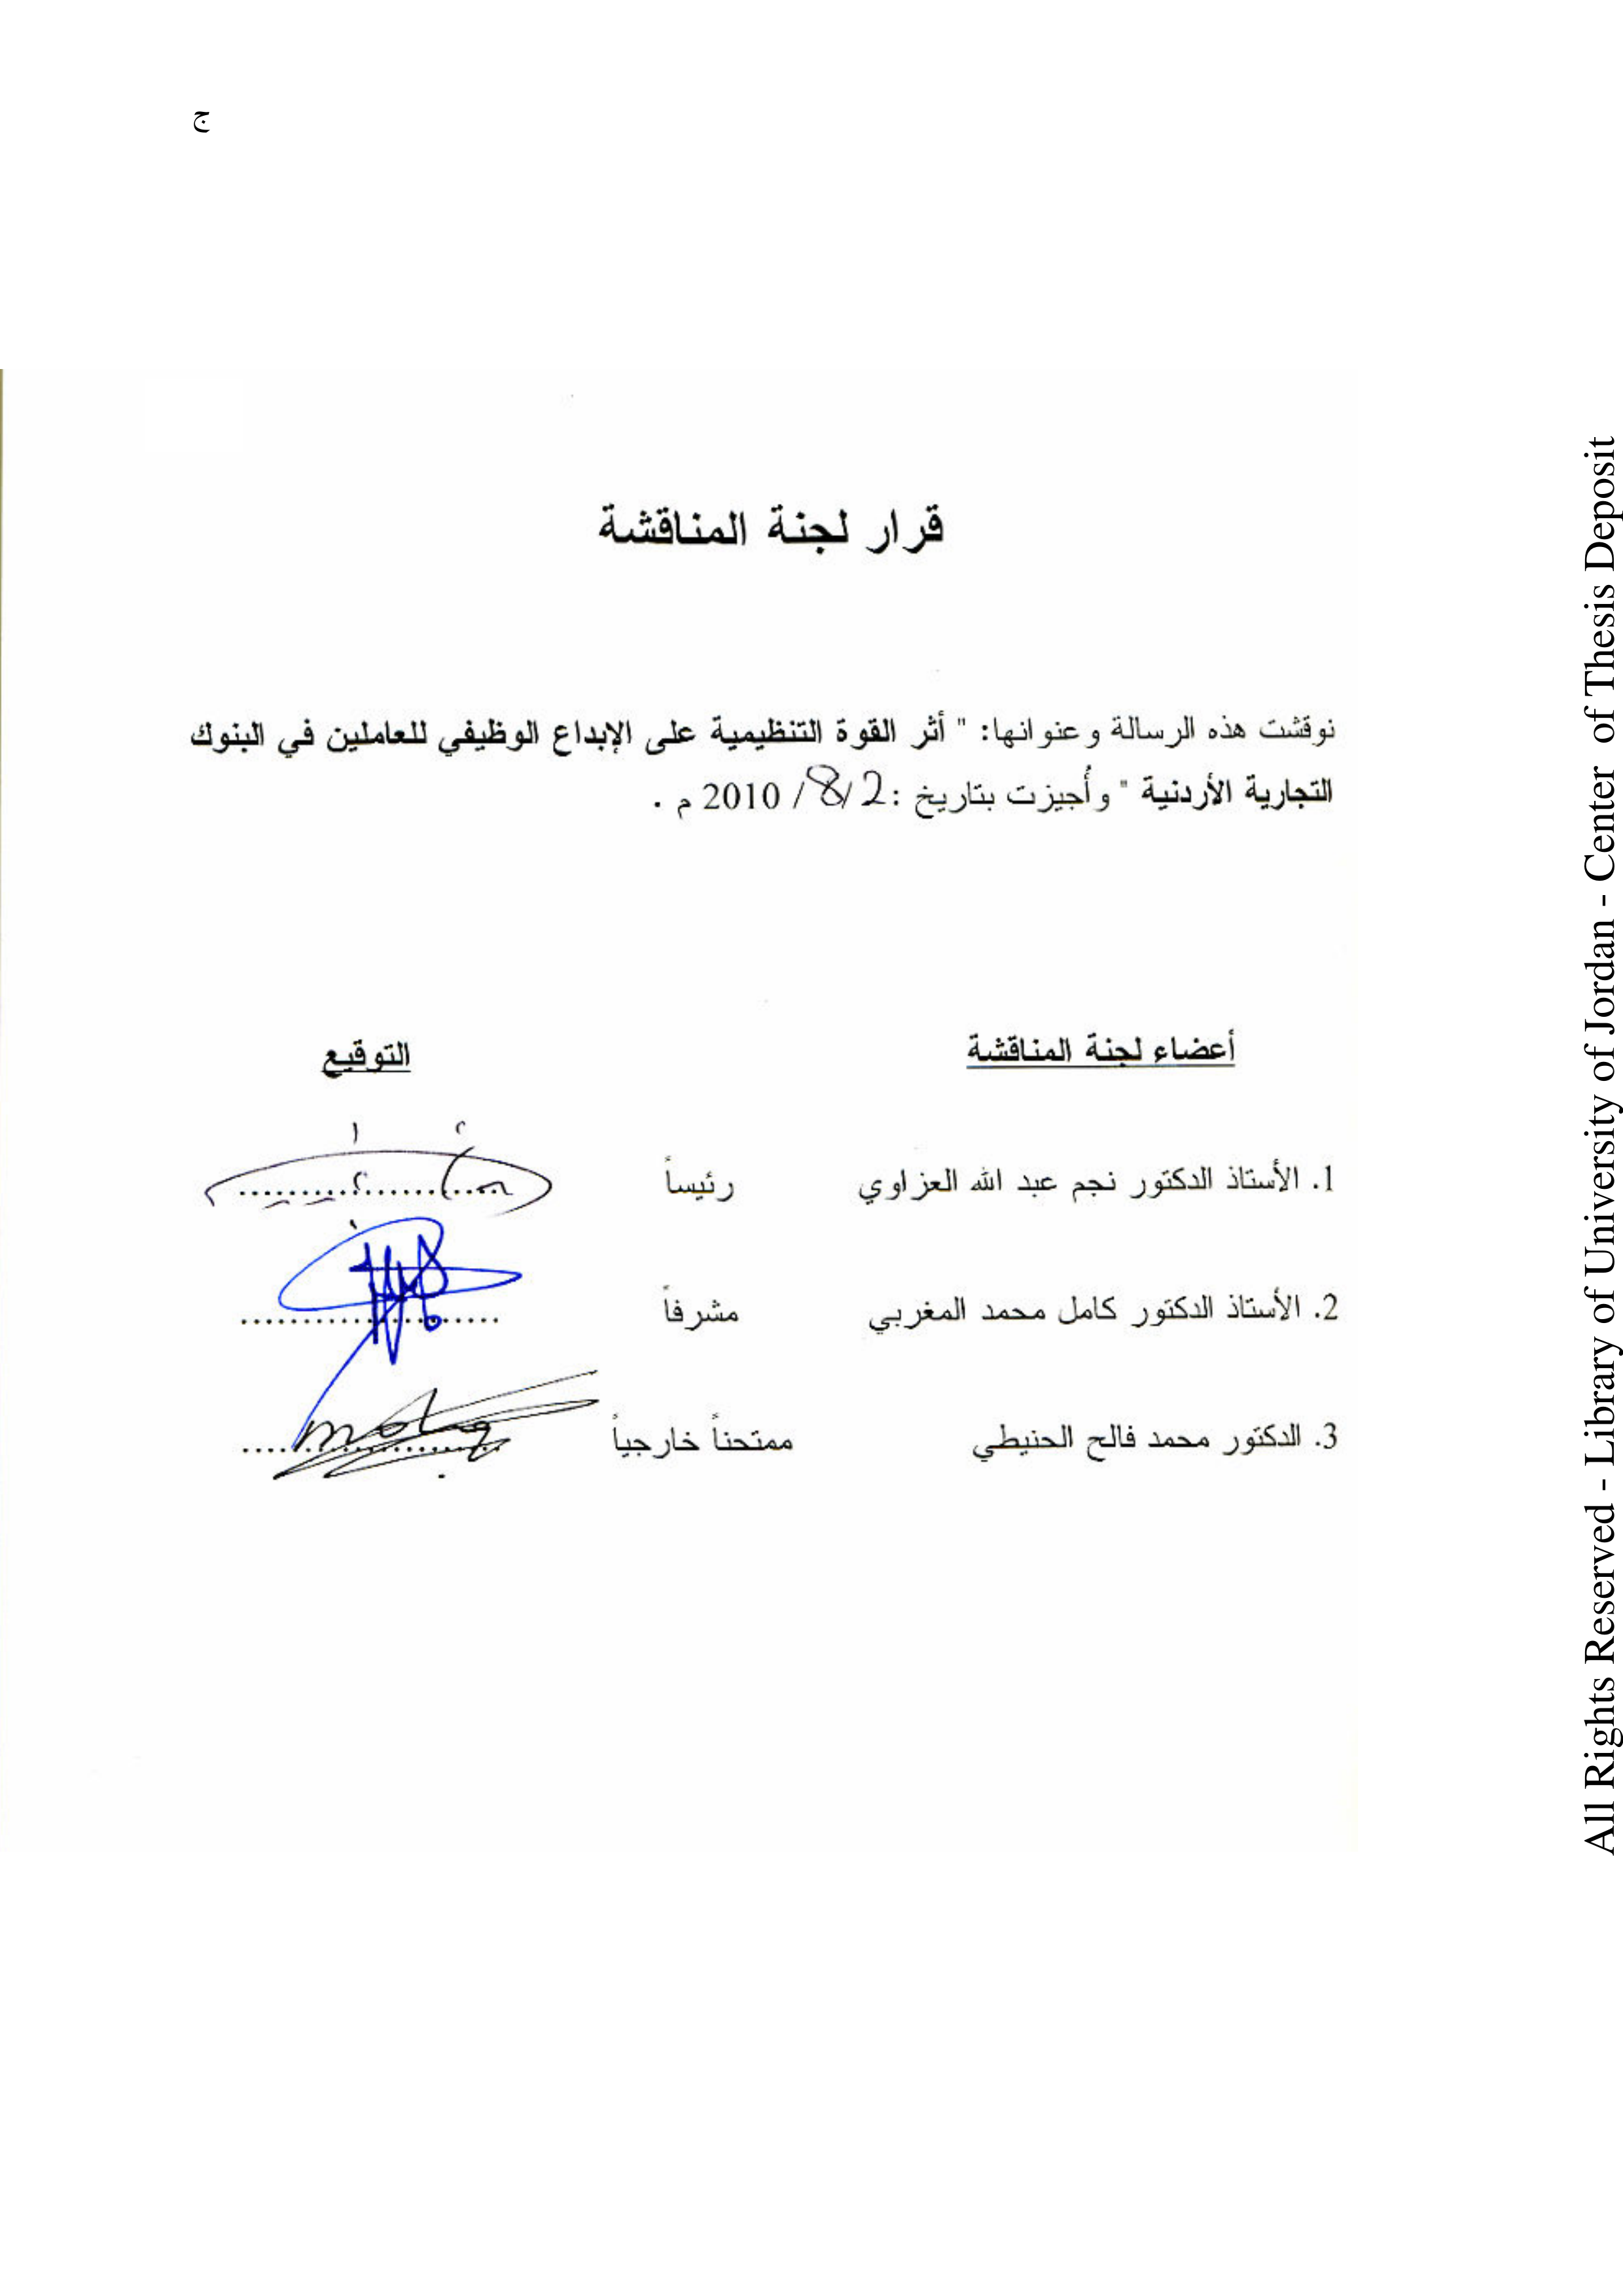 ج
قرار لجنة المناقشة
نوقشت هذه الرسالة وعنوانها: " أثر القوة التنظيمية على الإبداع الوظيفي للعاملين في البنوك
التجارية الأردنية " وأُجيزت بتاريخ :2/8/ 2010 م .
أعضاء لجنة المناقشة التوقيع
1. الأستاذ الدكتور نجم عبد الله العزاوي رئيساً ......................
2. الأستاذ الدكتور كامل محمد المغربي مشرفاً ......................
3. الدكتور محمد فالح الحنيطي ممتحناً خارجياً ......................
All Rights Reserved - Library of University of Jordan - Center of Thesis Deposit